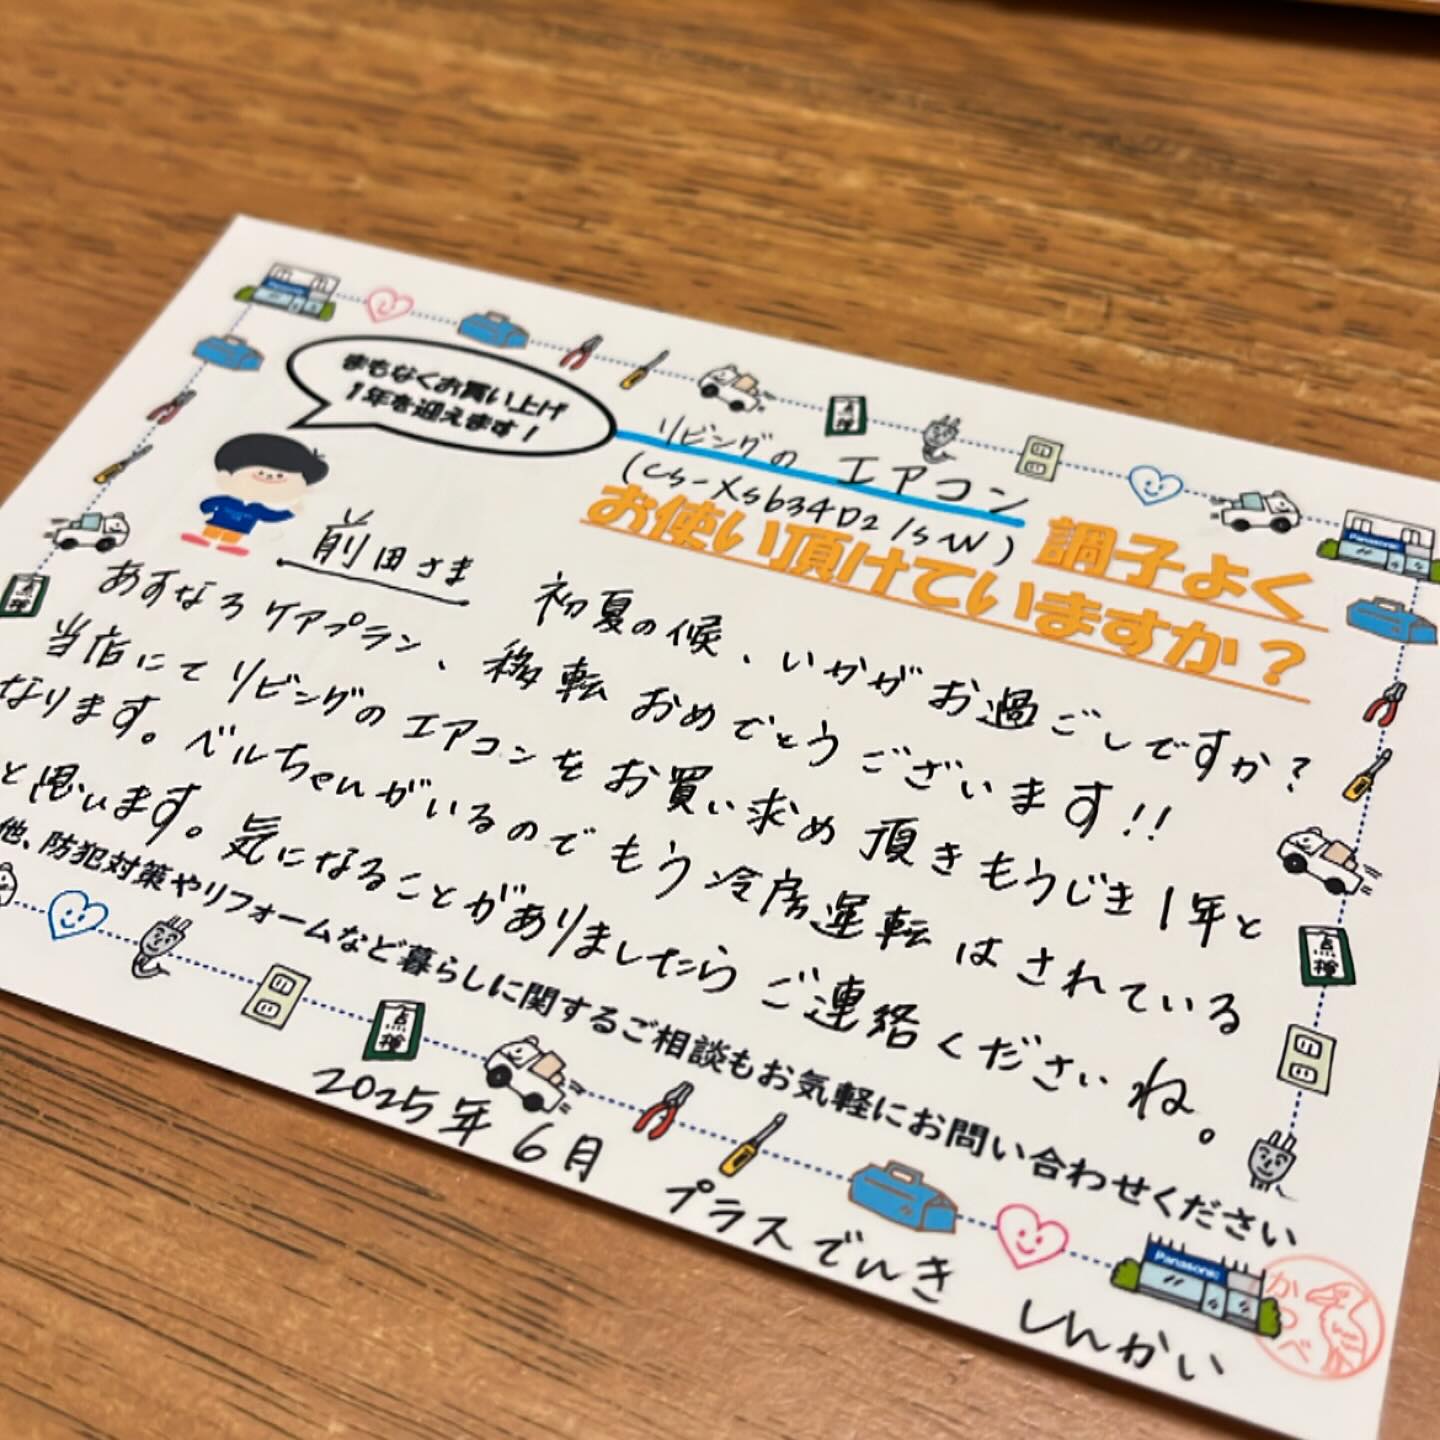 まもなくお買い上げ
1年を迎えます！
リビングの エアコン
(CS-XS634D2/SW)
調子よく
お使い頂けていますか？
前田さま 初夏の候、いかがお過ごしですか?
あすなろケアプラン、移転おめでとうございます!!
当店にてリビングのエアコンをお買い求め頂きもうじき1年と
なります。ベルちゃんがいるのでもう冷房運転はされている
と思います。気になることがありましたらご連絡くださいね。
他、防犯対策やリフォームなど暮らしに関するご相談もお気軽にお問い合わせください
2025年6月 プラスでんき しんかい
Panasonic
Panasonic
Panasonic
点検
点検
点検
点検
かつべ